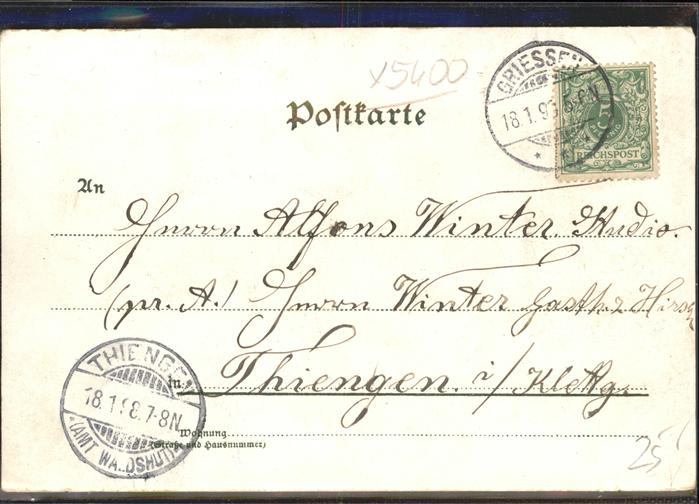 x5400
GRIESSEN
18.1.98 5-6N
REICHSPOST
Postkarte
An
Herrn Alfons Winter
(pr. A.) Herrn Winter Gasth. z Hirsch
in Thiengen i/ Klettg.
THIENGEN
18.1.98.7-8N.
(AMT WALDSHUT)
Wohnung
(Straße und Hausnummer)
25